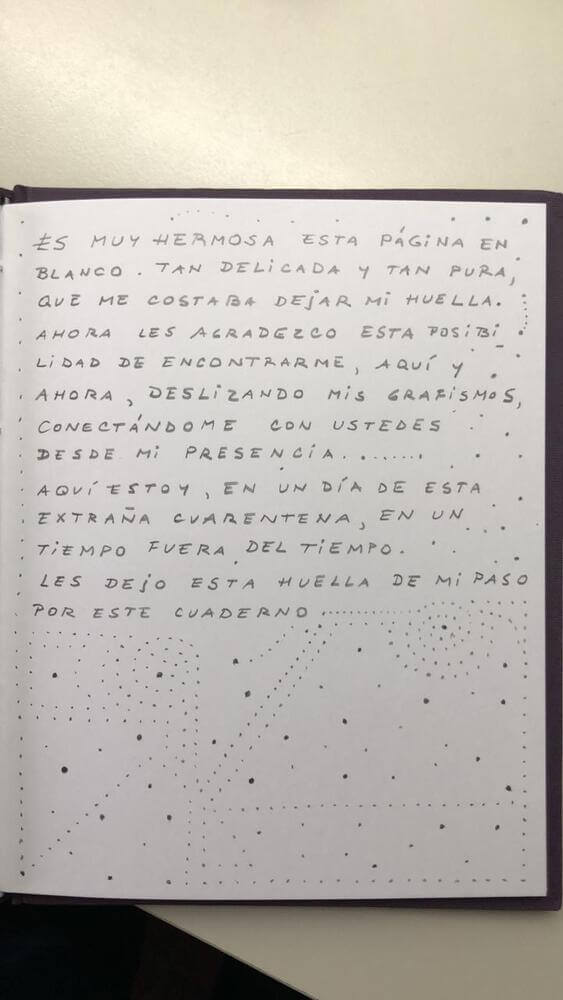 ES MUY HERMOSA ESTA PÁGINA EN
BLANCO. TAN DELICADA Y TAN PURA,
QUE ME COSTABA DEJAR MI HUELLA.
AHORA LES AGRADEZCO ESTA POSIBI_
LIDAD DE ENCONTRARME, AQUÍ Y
AHORA, DESLIZANDO MIS GRAFISMOS,
CONECTÁNDOME CON USTEDES
DESDE MI PRESENCIA........
AQUÍ ESTOY, EN UN DÍA DE ESTA
EXTRAÑA CUARENTENA, EN UN
TIEMPO FUERA DEL TIEMPO.
LES DEJO ESTA HUELLA DE MI PASO
POR ESTE CUADERNO